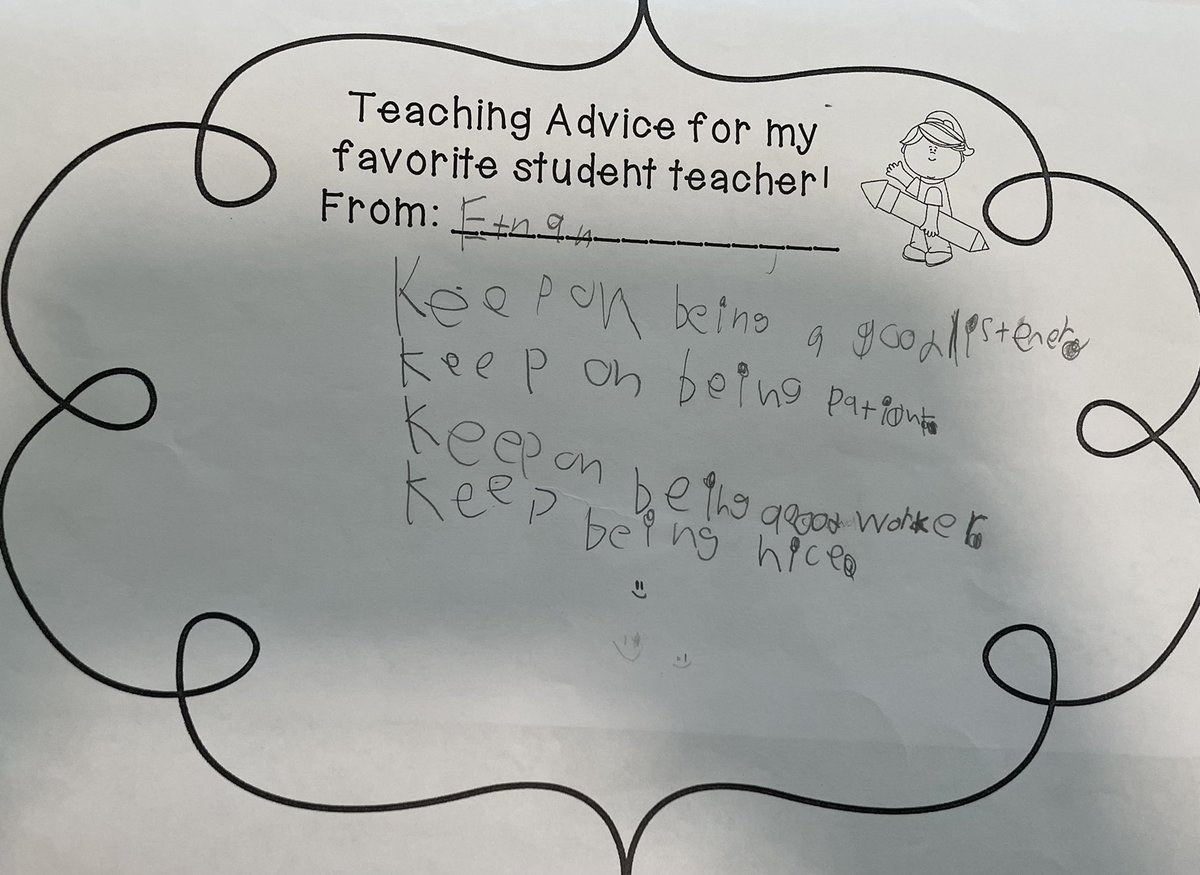 Teaching Advice for my
favorite student teacher!
From: Ethan
Keep on being a good listener.
Keep on being patient.
Keep on being a good worker.
Keep being nice.